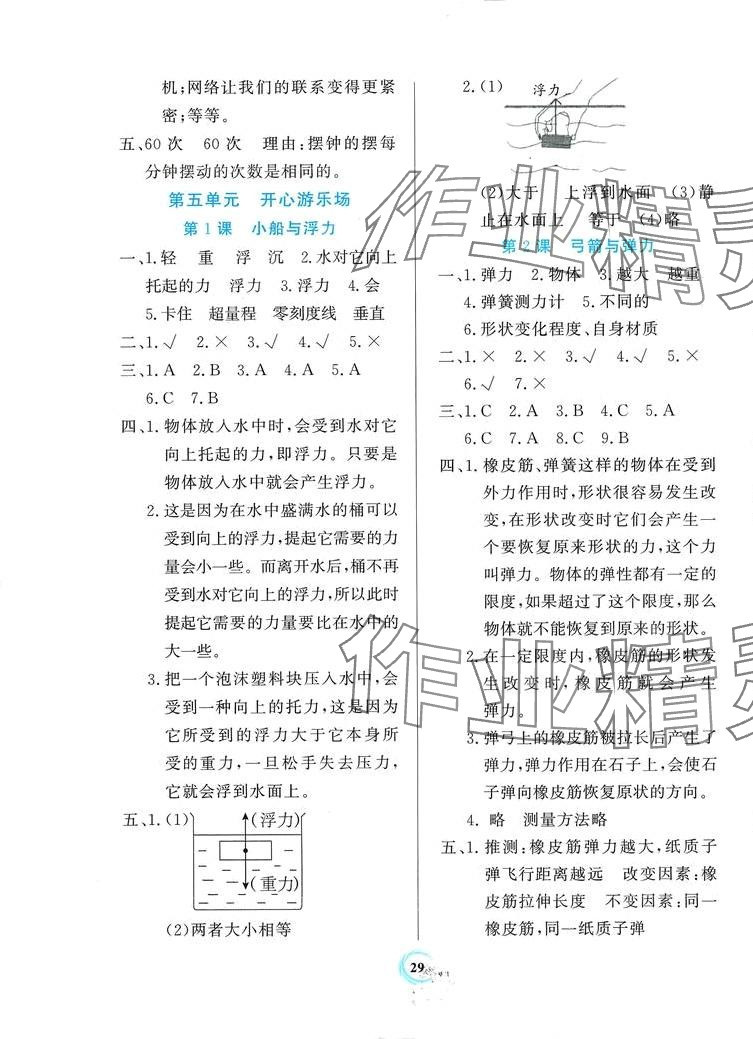 机;网络让我们的联系变得更紧
密;等等。
五、60次 60次 理由:摆钟的摆每
分钟摆动的次数是相同的。
第五单元 开心游乐场
第1课 小船与浮力
一、1.轻 重 浮 沉 2.水对它向上
托起的力 浮力 3.浮力 4.会
5.卡住 超量程 零刻度线 垂直
二、1.√ 2.× 3.√ 4.√ 5.×
三、1.A 2.B 3.A 4.C 5.A
6.C 7.B
四、1.物体放入水中时,会受到水对它
向上托起的力,即浮力。只要是
物体放入水中就会产生浮力。
2.这是因为在水中盛满水的桶可以
受到向上的浮力,提起它需要的力
量会小一些。而离开水后,桶不再
受到水对它向上的浮力,所以此时
提起它需要的力量要比在水中的
大一些。
3.把一个泡沫塑料块压入水中,会
受到一种向上的托力,这是因为
它所受到的浮力大于它本身所
受的重力,一旦松手失去压力,
它就会浮到水面上。
五、1.(1)
(浮力)
(重力)
(2)两者大小相等
2.(1)
浮力
(2)大于 上浮到水面 (3)静
止在水面上 等于 (4)略
第2课 弓箭与弹力
一、1.弹力 2.物体 3.越大 越重
4.弹簧测力计 5.不同的
6.形状变化程度、自身材质
二、1.× 2.× 3.√ 4.√ 5.×
6.√ 7.×
三、1.C 2.A 3.B 4.C 5.A
6.C 7.C 8.C 9.B
四、1.橡皮筋、弹簧这样的物体在受到
外力作用时,形状很容易发生改
变,在形状改变时它们会产生一
个要恢复原来形状的力,这个力
叫弹力。物体的弹性都有一定的
限度,如果超过了这个限度,那么
物体就不能恢复到原来的形状。
2.在一定限度内,橡皮筋的形状发
生改变时,橡皮筋就会产生
弹力。
3.弹弓上的橡皮筋被拉长后产生了
弹力,弹力作用在石子上,会使石
子弹向橡皮筋恢复原状的方向。
4.略 测量方法略
五、1.推测:橡皮筋弹力越大,纸质子
弹飞行距离越远 改变因素:橡
皮筋拉伸长度 不变因素:同一
橡皮筋,同一纸质子弹
29
作业精灵
作业精灵